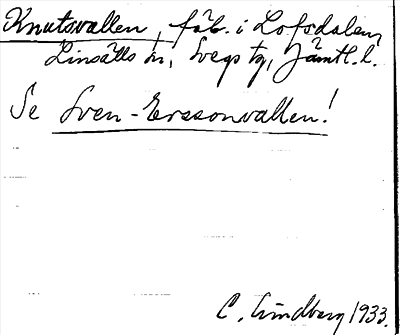 Knutsvallen, fäb. i Lofsdalen,
Linsälls sn, Svegs tg, Jämtl. l.
Se Sven-Erssonvallen!
C. Lindberg 1933.